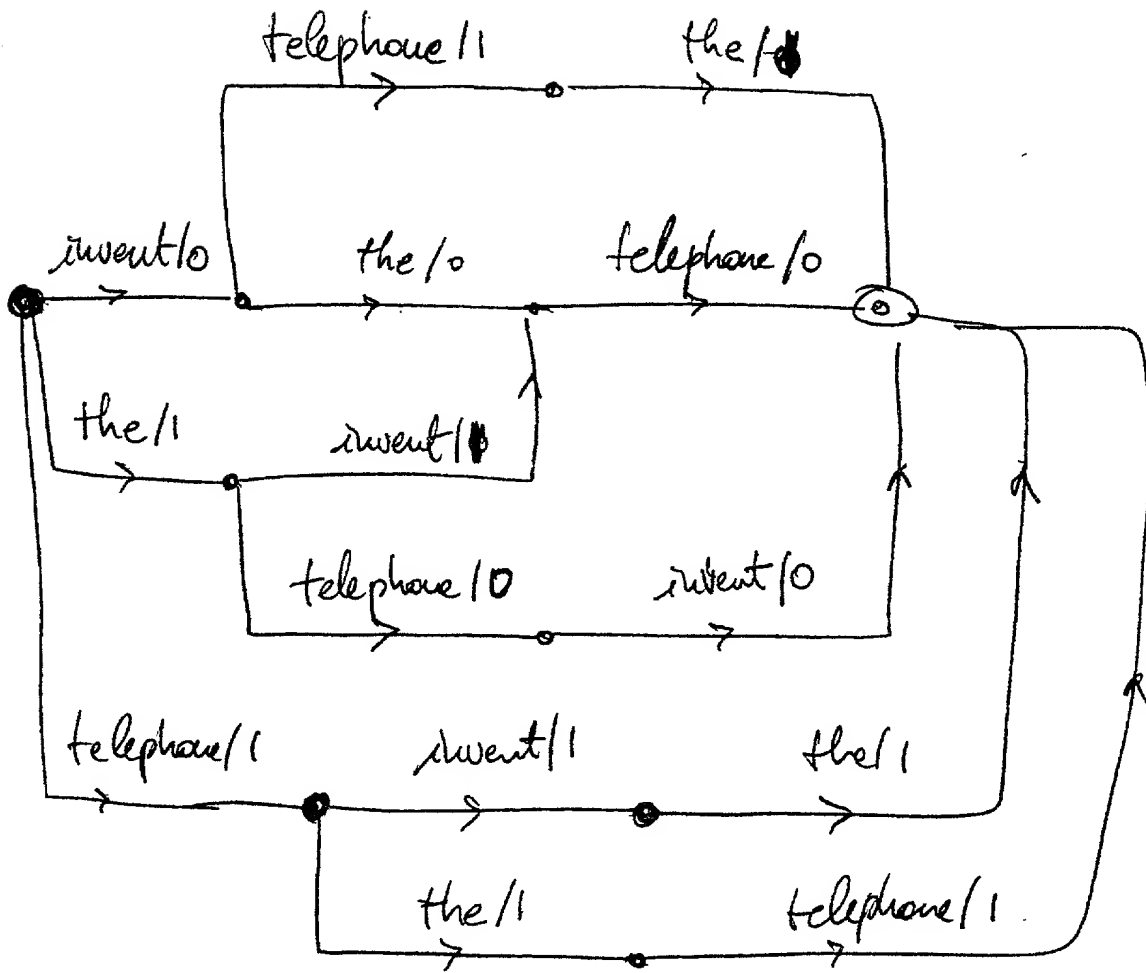 telephone/1 the/
invent/0 the/0 telephone/0
the/1 invent/
telephone/0 invent/0
telephone/1 invent/1 the/1
the/1 telephone/1